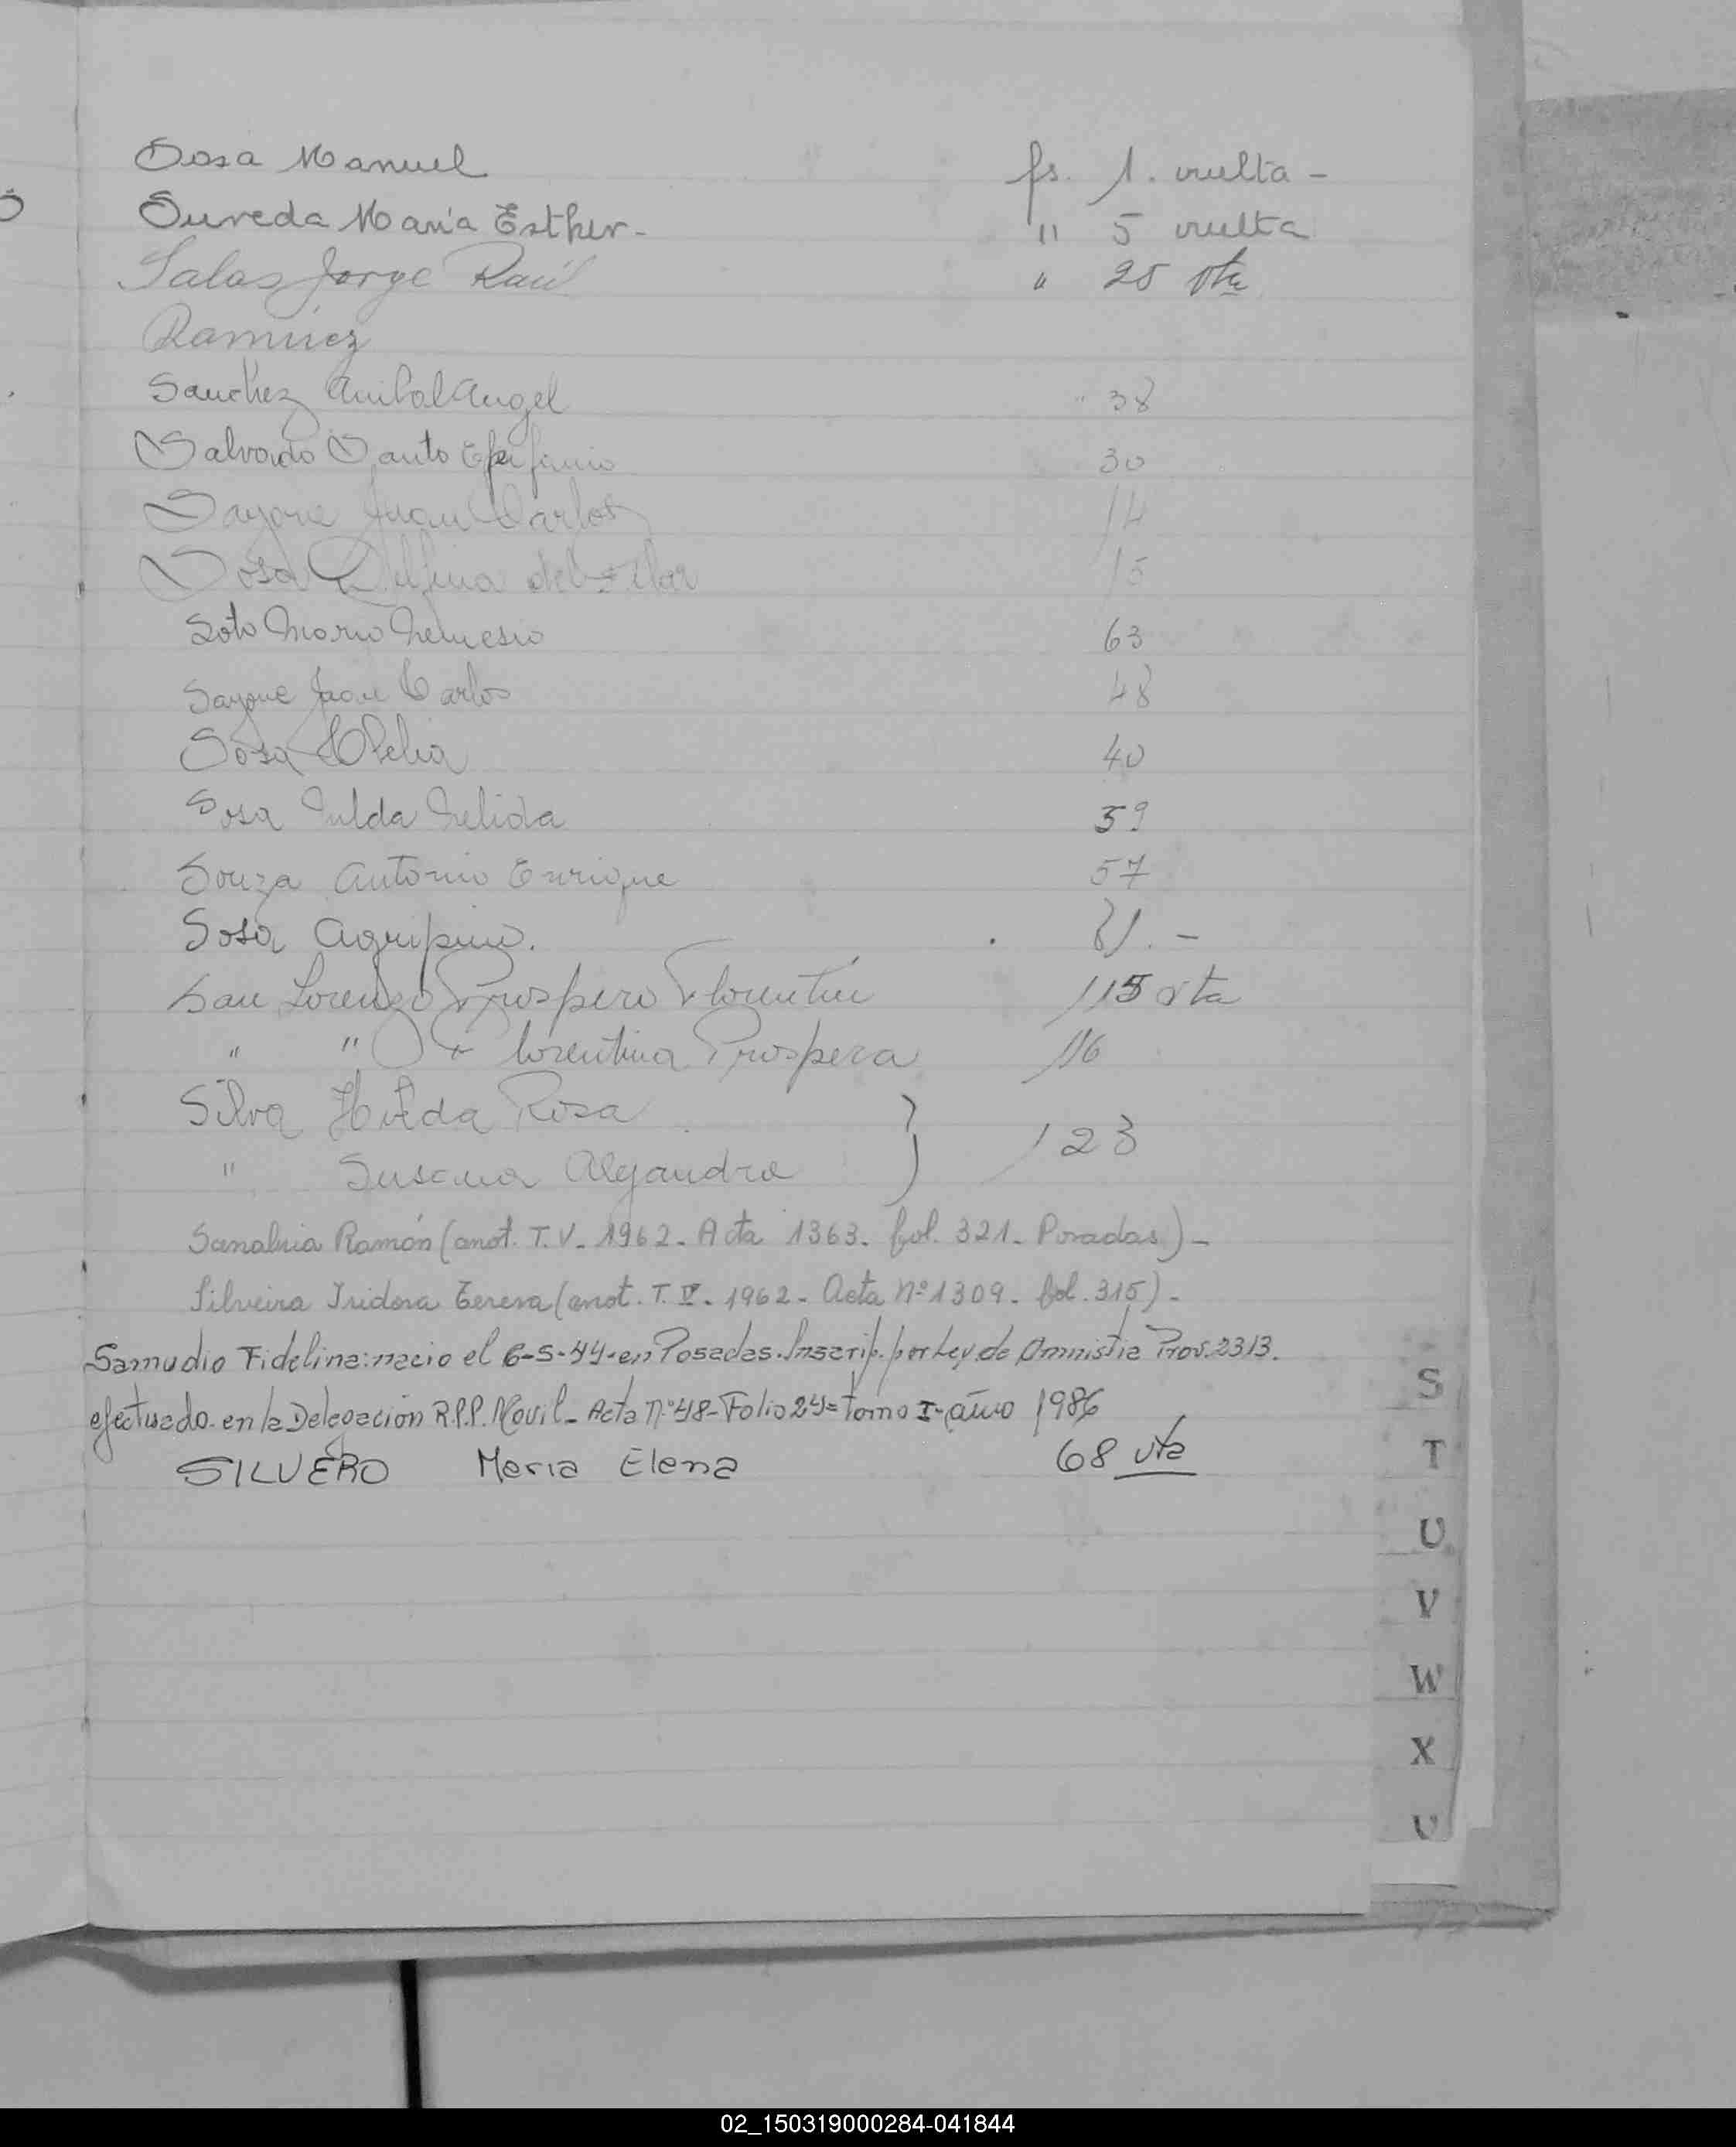 Sosa Manuel fs. 1. vuelta -
Sureda María Esther - " 5 vuelta
Salas Jorge Raúl " 25 vta
Ramírez
Sanchez Anibal Angel " 38
Salvado Santo Epifanio 30
Sayone Juan Carlos 14
Sosa Delfina del Pilar 15
Soto Mario Nemesio 63
Sayone Juan Carlos 48
Sosa Clelia 40
Sosa Nilda Nelida 59
Souza Antonio Enrique 57
Sosa Agripino. 81.-
San Lorenzo Prospero Florentin 115 vta
" " Florentina Prospera 116
Silva Hilda Rosa } 123
" Susana Alejandra
Sanabria Ramón (anot. T. V. 1962. Acta 1363. fol. 321. Posadas) -
Silveira Isidora Teresa (anot. T. V. 1962 - Acta Nº 1309. fol. 315) -
Samudio Fidelina: nacio el 6-5-44-en Posadas. Inscrip. por Ley de Amnistia Prov. 2313.
efectuado en la Delegacion R.P.P. Movil - Acta Nº 48 - Folio 24 = tomo I - año 1986
SILVERO Maria Elena 68 vta
S
T
U
V
W
X
02_150319000284-041844